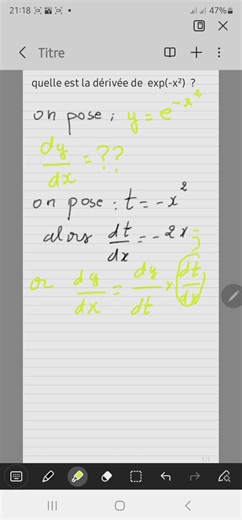 21:18
47%
Titre
quelle est la dérivée de exp(-x²) ?
on pose : y = e^{-x^2}
dy/dx = ??
on pose : t = -x^2
alors dt/dx = -2x ;
or dy/dx = dy/dt × dt/dx
1/1